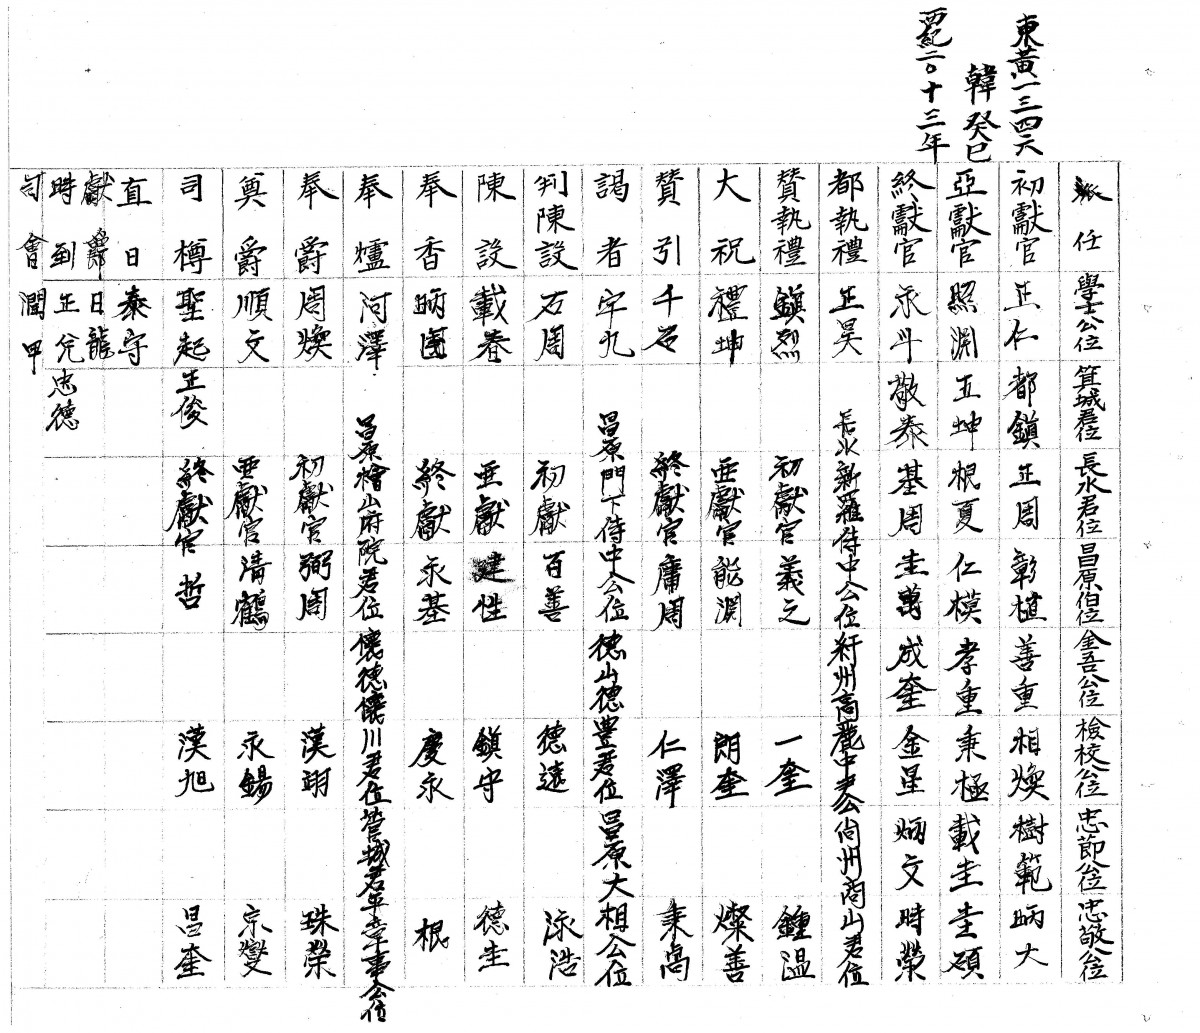 東黃一三四六
韓癸巳
西紀二〇十三年
派任 學士公位 箕城君位 長水君位 昌原伯位 金吾公位 檢校公位 忠節公位 忠敬公位
初獻官 正仁 都鎭 正周 彰植 善重 相煥 樹範 昞大
亞獻官 照淵 五坤 根夏 仁模 孝重 秉極 載圭 圭碩
終獻官 永斗 敬泰 基周 圭萬 成奎 金星 炳文 時榮
都執禮 正昊 長水新羅侍中公位 高麗中尹公 尙州商山君位
贊執禮 鎭烈 初獻官 義之 一奎 鍾溫
大祝 禮坤 亞獻官 能淵 朗奎 燦善
贊引 千石 終獻官 庸周 仁澤 秉高
謁者 牢九 昌原門下侍中公位 德山德豊君位 昌原大相公位
判陳設 石周 初獻 百善 德遠 泳浩
陳設 載春 亞獻 建性 鎭守 德圭
奉香 昞國 終獻 永基 慶永 根
奉爐 河澤 昌原檜山府院君位 懷德懷川君位 管城君平章事公位
奉爵 周煥 初獻官 弼周 漢翊 珠榮
奠爵 順文 亞獻官 淸鶴 永錫 宗燮
司樽 聖起 正俊 終獻官 哲 漢旭 昌奎
直日 泰守
獻爵 日龍
時到 正兌 忠德
司會 潤甲